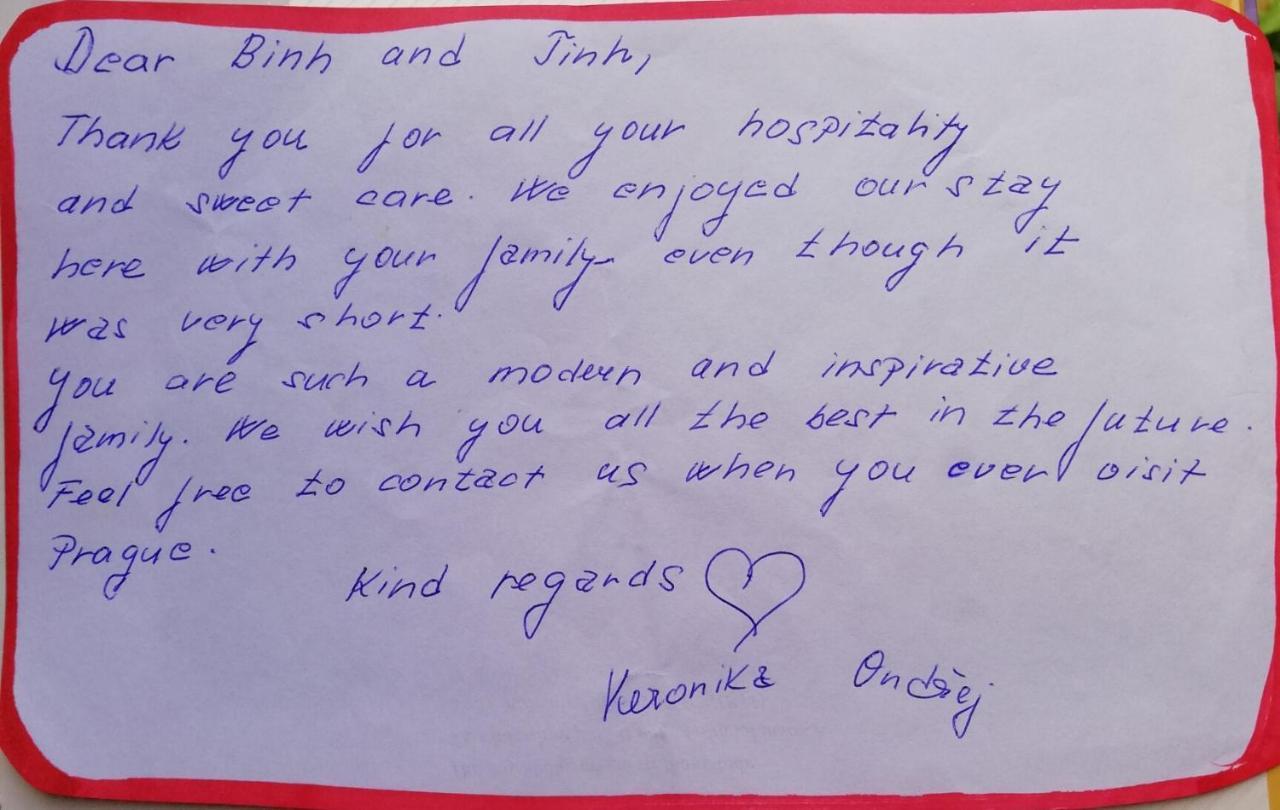 Dear Binh and Tinh,
Thank you for all your hospitality
and sweet care. We enjoyed our stay
here with your family even though it
was very short.
You are such a modern and inspirative
family. We wish you all the best in the future.
Feel free to contact us when you ever visit
Prague.
Kind regards
Veronika Ondřej